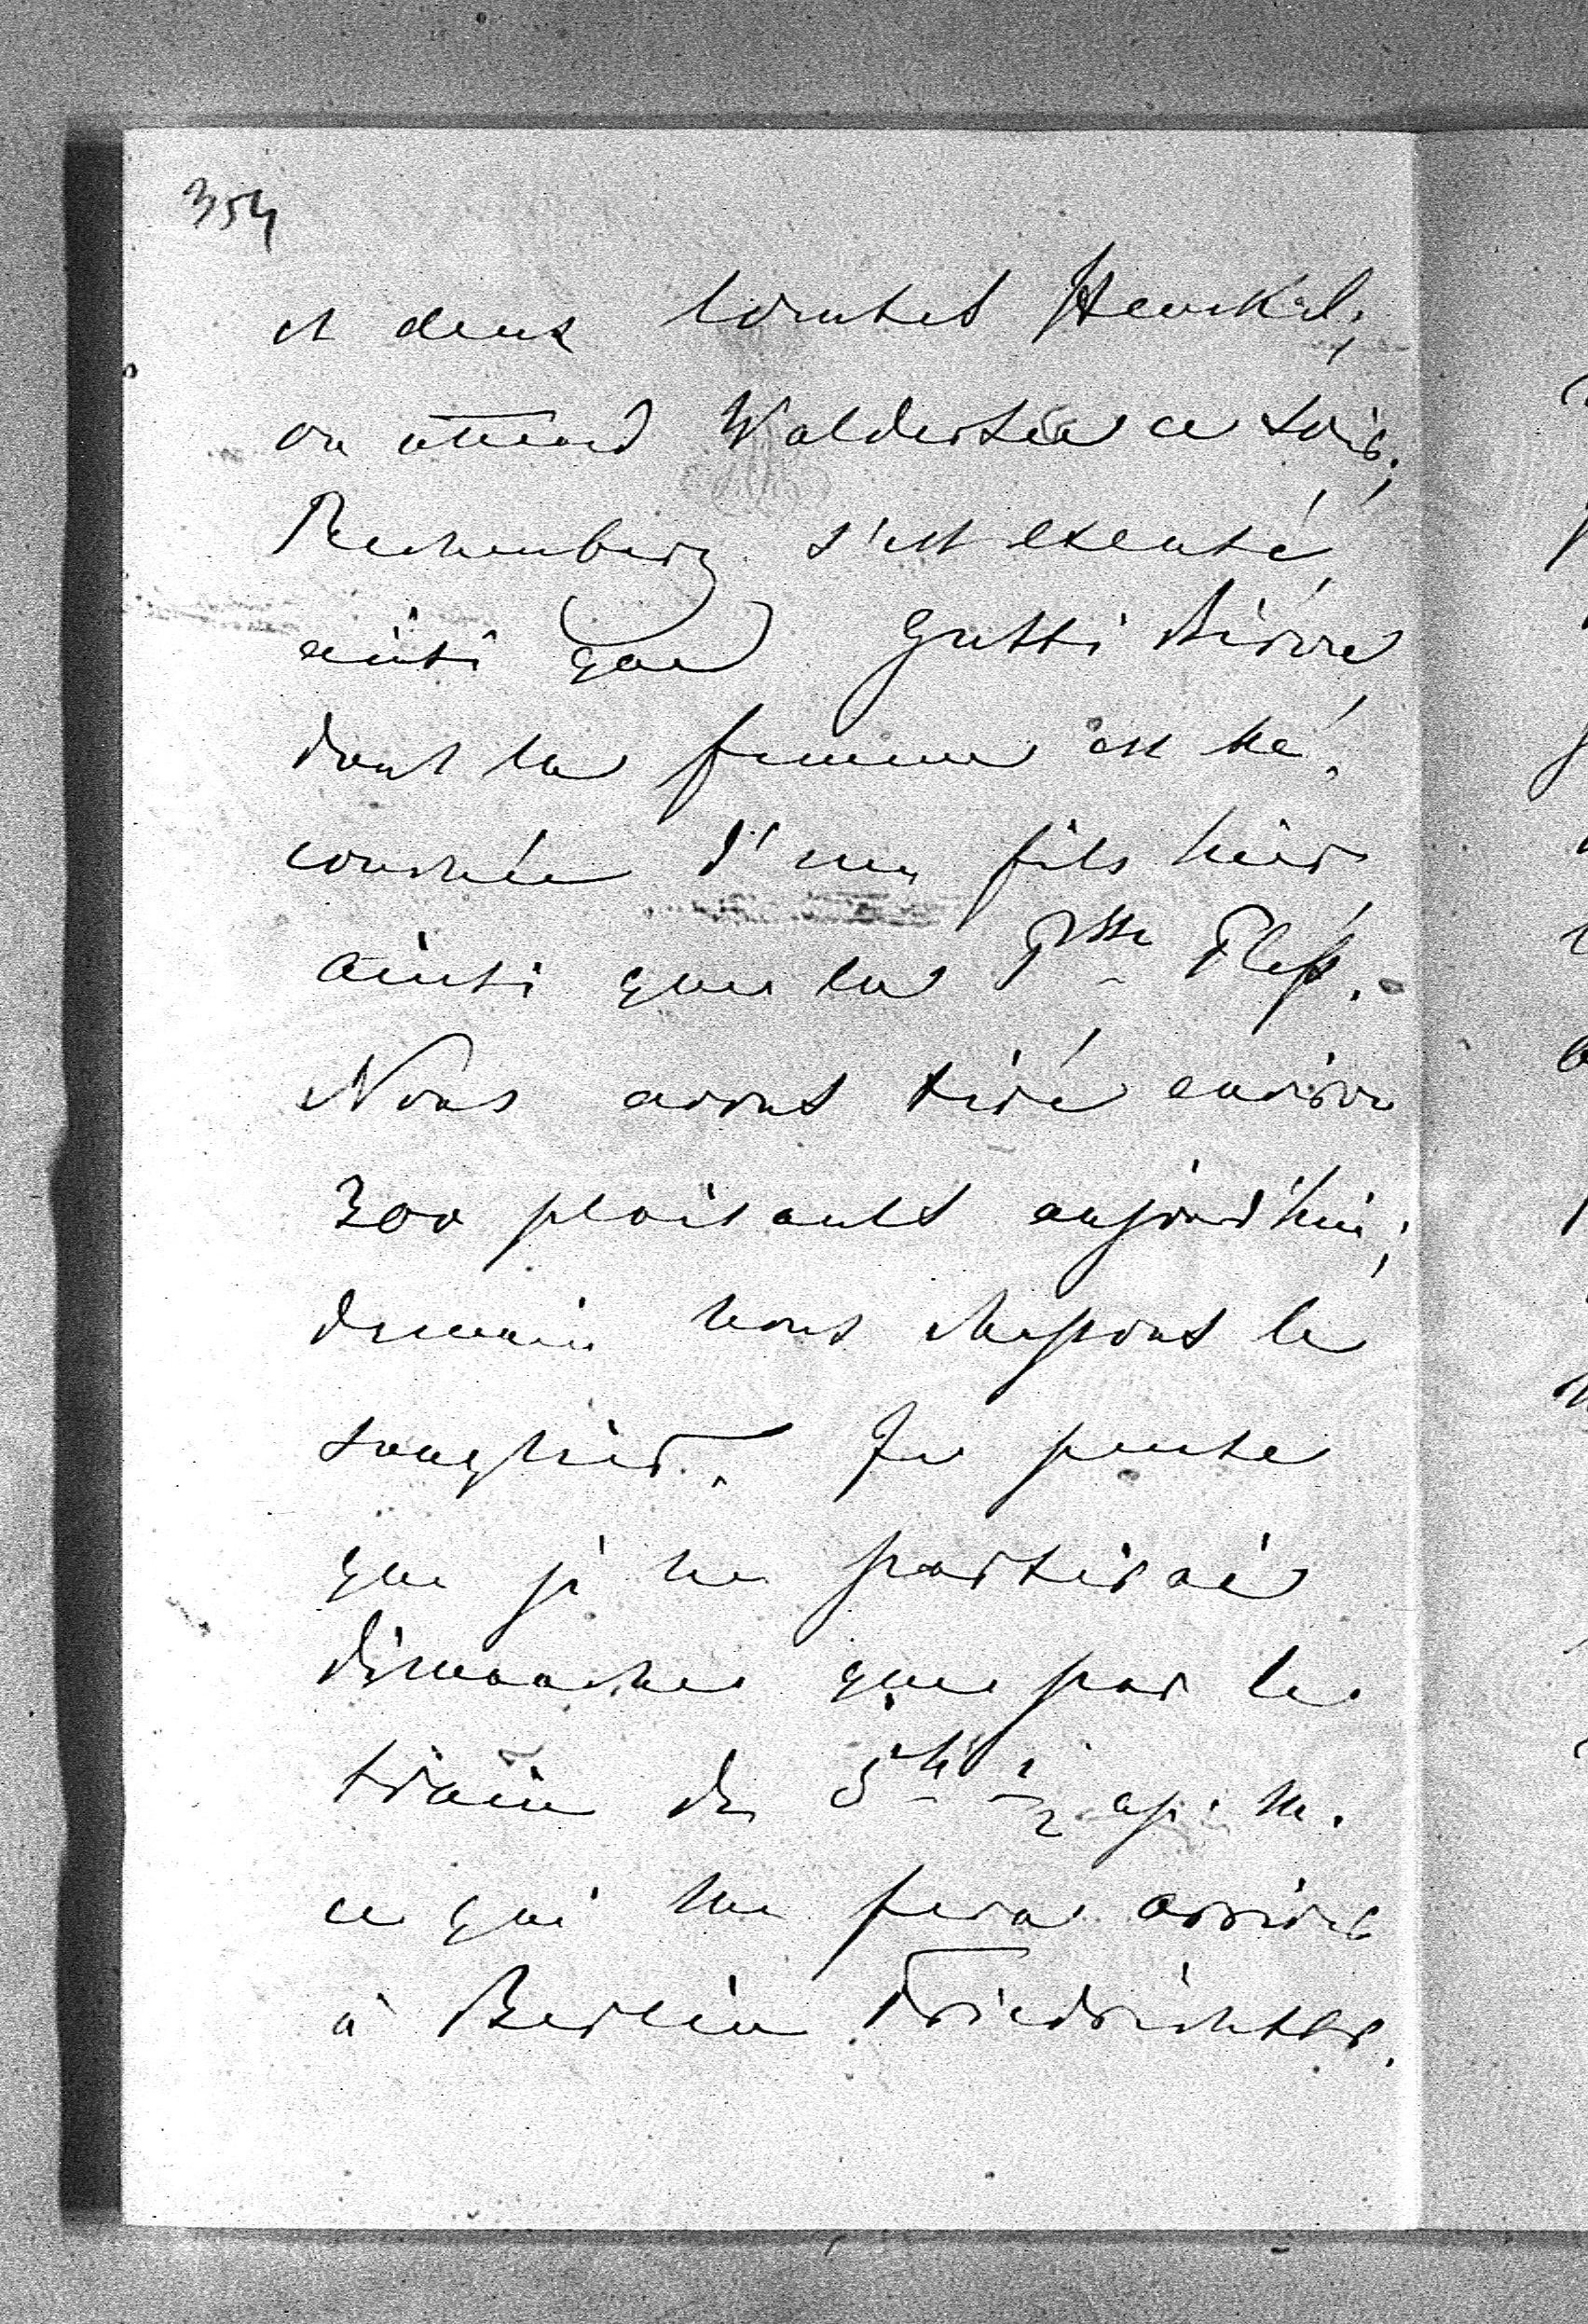 354
et deux Comtes Henkel;
on attend Waldersee ce soir;
Rechenberg s'est excusé,
ainsi que Gusti Biron,
dont la femme est ac.
couchée d'un fils hier,
ainsi que la Psse Pless.
Nous avons tiré environ
300 faisants aujourd'hui;
demain nous chassons le
sanglier. Je pense
que je ne partirai
dimanche que par le
train de 5h 1/2 ap. m.
ce qui me fera arriver
à Berlin Friedrichstr.